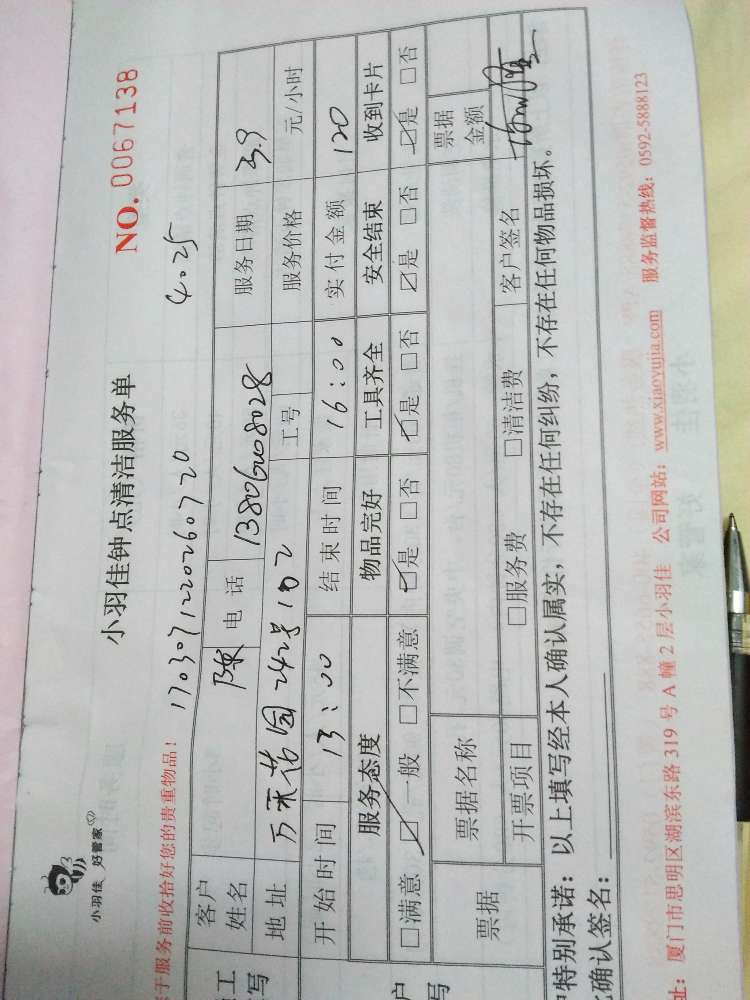 小羽佳 好管家
小羽佳钟点清洁服务单
NO. 0067138
于服务前收拾好您的贵重物品！ 1703071220260720 4.025
客户姓名 陈 电话 服务日期 3.9
地址 万禾花园242号102 工号 服务价格 元/小时
开始时间 13:00 结束时间 16:00 实付金额 120
服务态度 物品完好 工具齐全 安全结束 收到卡片
□满意 ☑一般 □不满意 ☑是 □否 ☑是 □否 ☑是 □否 ☑是 □否
票据 票据名称 票据金额
开票项目 □服务费 □清洁费 客户签名
特别承诺：以上填写经本人确认属实，不存在任何纠纷，不存在任何物品损坏。
确认签名：
址：厦门市思明区湖滨东路 319 号 A 幢 2 层小羽佳 公司网站：www.xiaoyujia.com 服务监督热线：0592-5888123